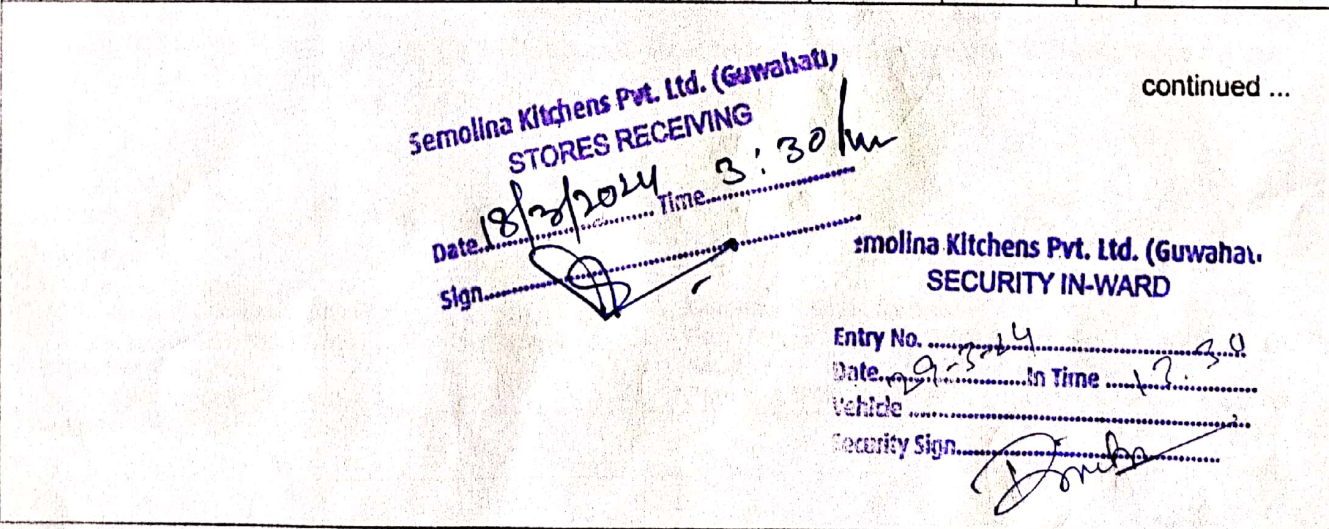 continued ...
Semolina Kitchens Pvt. Ltd. (Guwahati)
STORES RECEIVING
Date 18/3/2024 Time 3:30
Sign
emolina Kitchens Pvt. Ltd. (Guwahati
SECURITY IN-WARD
Entry No.
Date 29-3-24 In Time
Vehicle
Security Sign